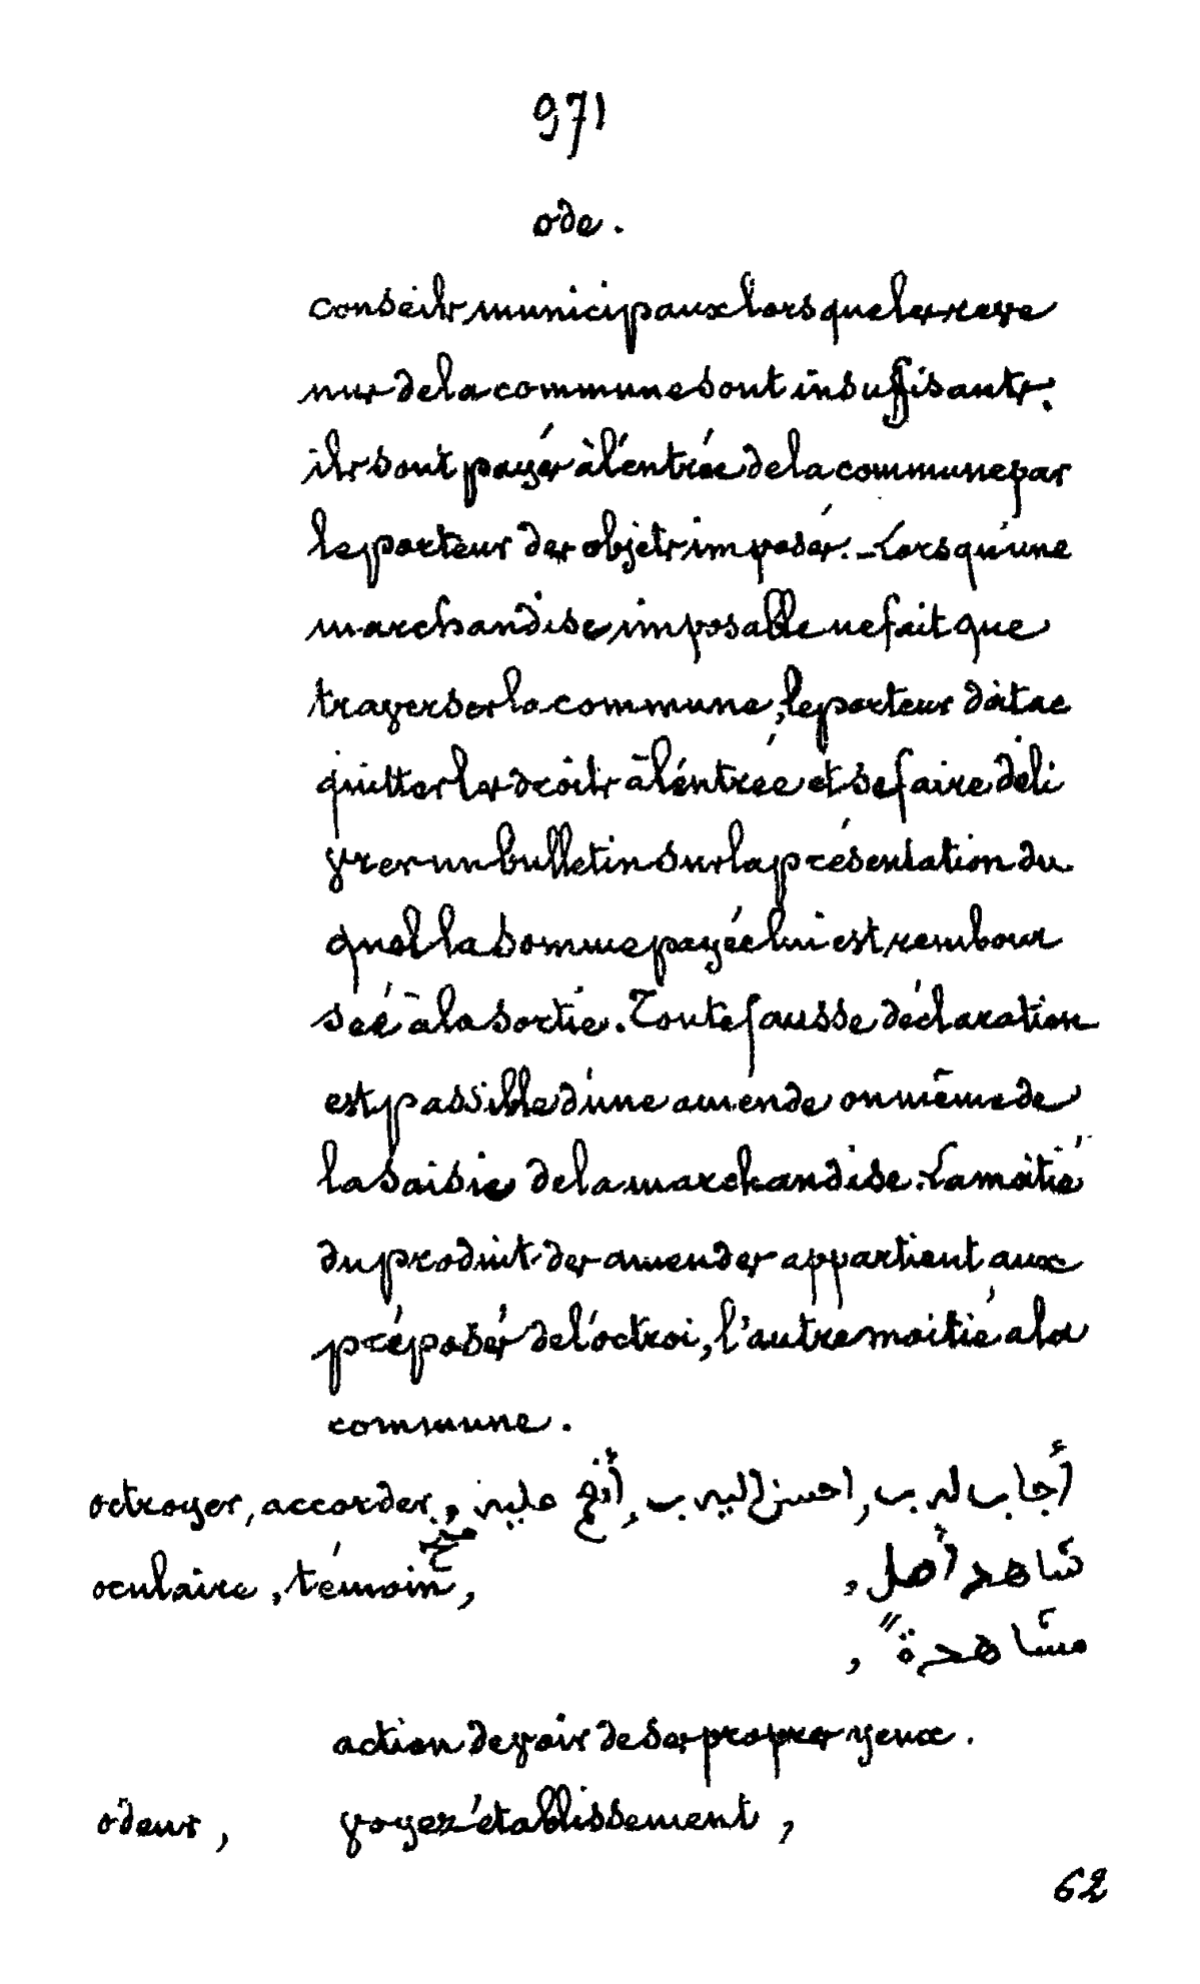 971
ode.
conseils municipaux lorsque les reve
nus de la commune sont insuffisants:
ils sont payés à l'entrée de la commune par
le porteur des objets imposés. - Lorsqu'une
marchandise imposable ne fait que
traverser la commune, le porteur doit ac
quitter les droits à l'entrée et se faire déli
vrer un bulletin sur la présentation du
quel la somme payée lui est rembour
séé à la sortie. Toute fausse déclaration
est passible d'une amende ou même de
la saisie de la marchandise. La moitié
du produit des amendes appartient aux
préposés de l'octroi, l'autre moitié a la
commune.
octroyer, accorder, أجاب له ب, احسن اليه ب, أنعم عليه,
oculaire, témoin, شاهد أصل,
مشاهدة",
action de voir de ses propres yeux.
odeur, voyez établissement,
62